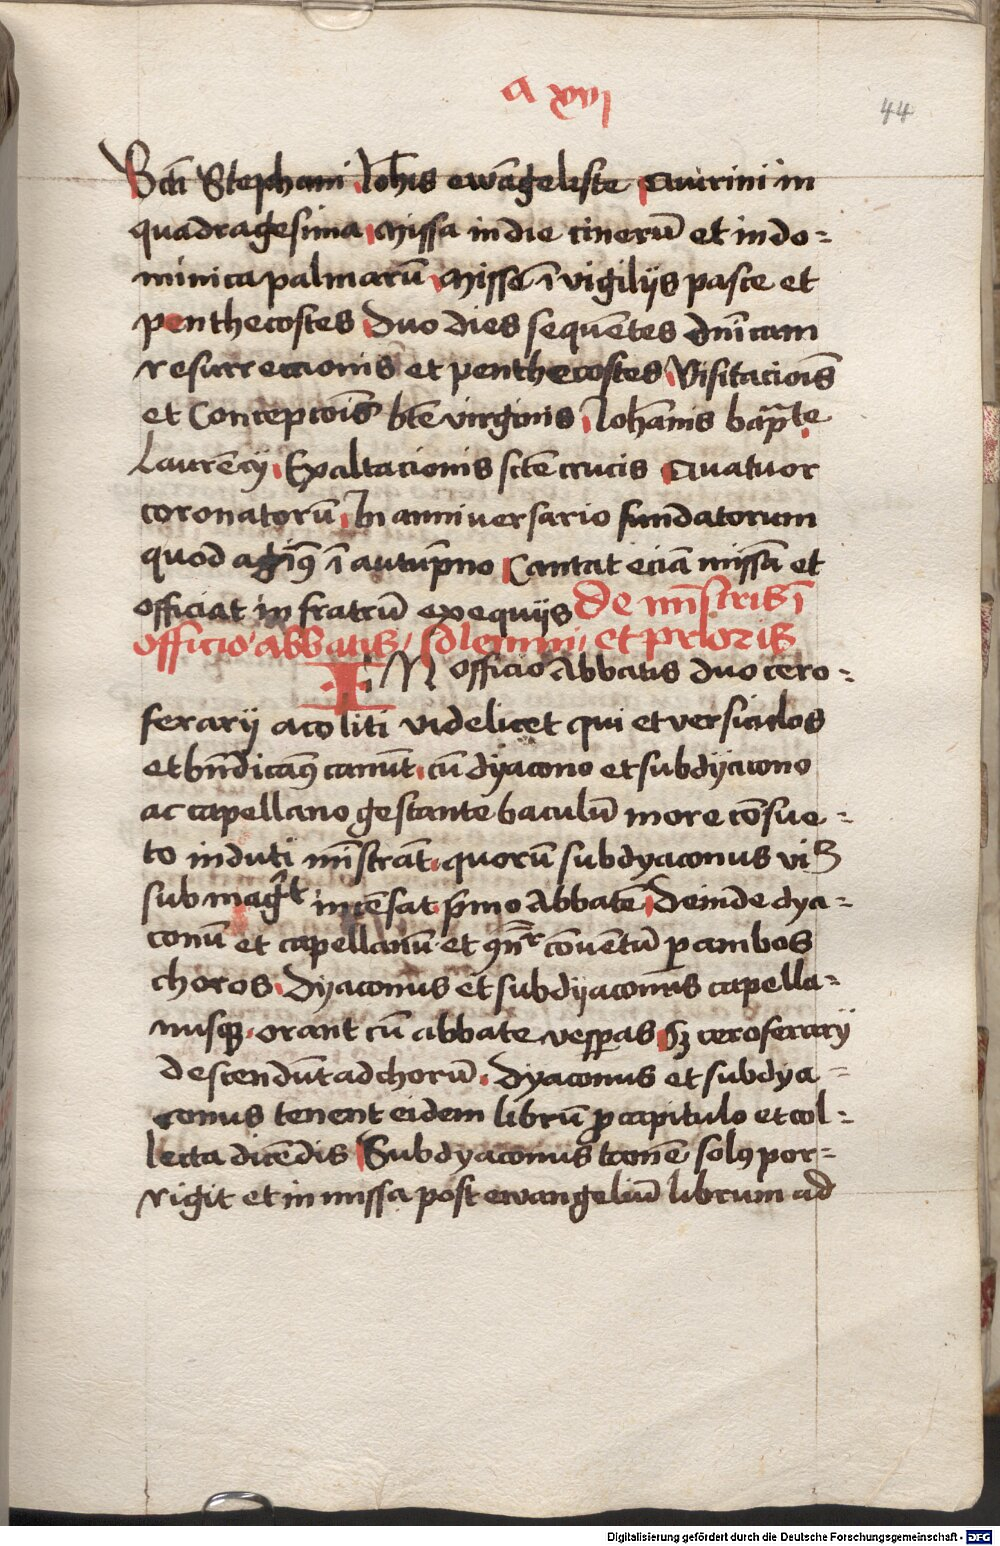 a xvi
44
Scti Stephani Joh̄is ewāgeliste Quirini in
quadragesima Missa in die cinerū et in do=
minica palmarū Misse ī vigilijs pasce et
penthecostes Duo dies sequētes dn̄icam
resurreccionis et penthecostes Visitaciōis
et Concepcōis bte virginis Joh̄annis bap̄te
Laurēcij Exaltacionis scte crucis Quatuor
coronatorū In anniversario fundatorum
quod agim9 ī autūpno Cantat eciā missā et
officiat in fratrū exequijs De mīstris ī
officio abbatis solemni et prioris
IN officio Abbatis duo cero=
ferarij acoliti videlicet qui et versiculos
et bn̄dicam9 canūt cū dyacono et subdyacono
ac capellano gestante baculū more cōsue=
to induti mīstrāt quorū subdyaconus
sub mag̅t incēsat p̄mo Abbatē Deinde dya=
conū et capellanū et cōventū p ambos
choros Dyaconus et subdyaconus capella=
nusq3 orant cū abbate vesperas S3 ceroferarij
descendūt ad chorū Dyaconus et subdya=
conus tenent eidem librū pro capitulo et col=
lecta dicēdis Subdyaconus tamē sol9 por=
rigit et in missa post ewangeliū librum ad
Digitalisierung gefördert durch die Deutsche Forschungsgemeinschaft - DFG